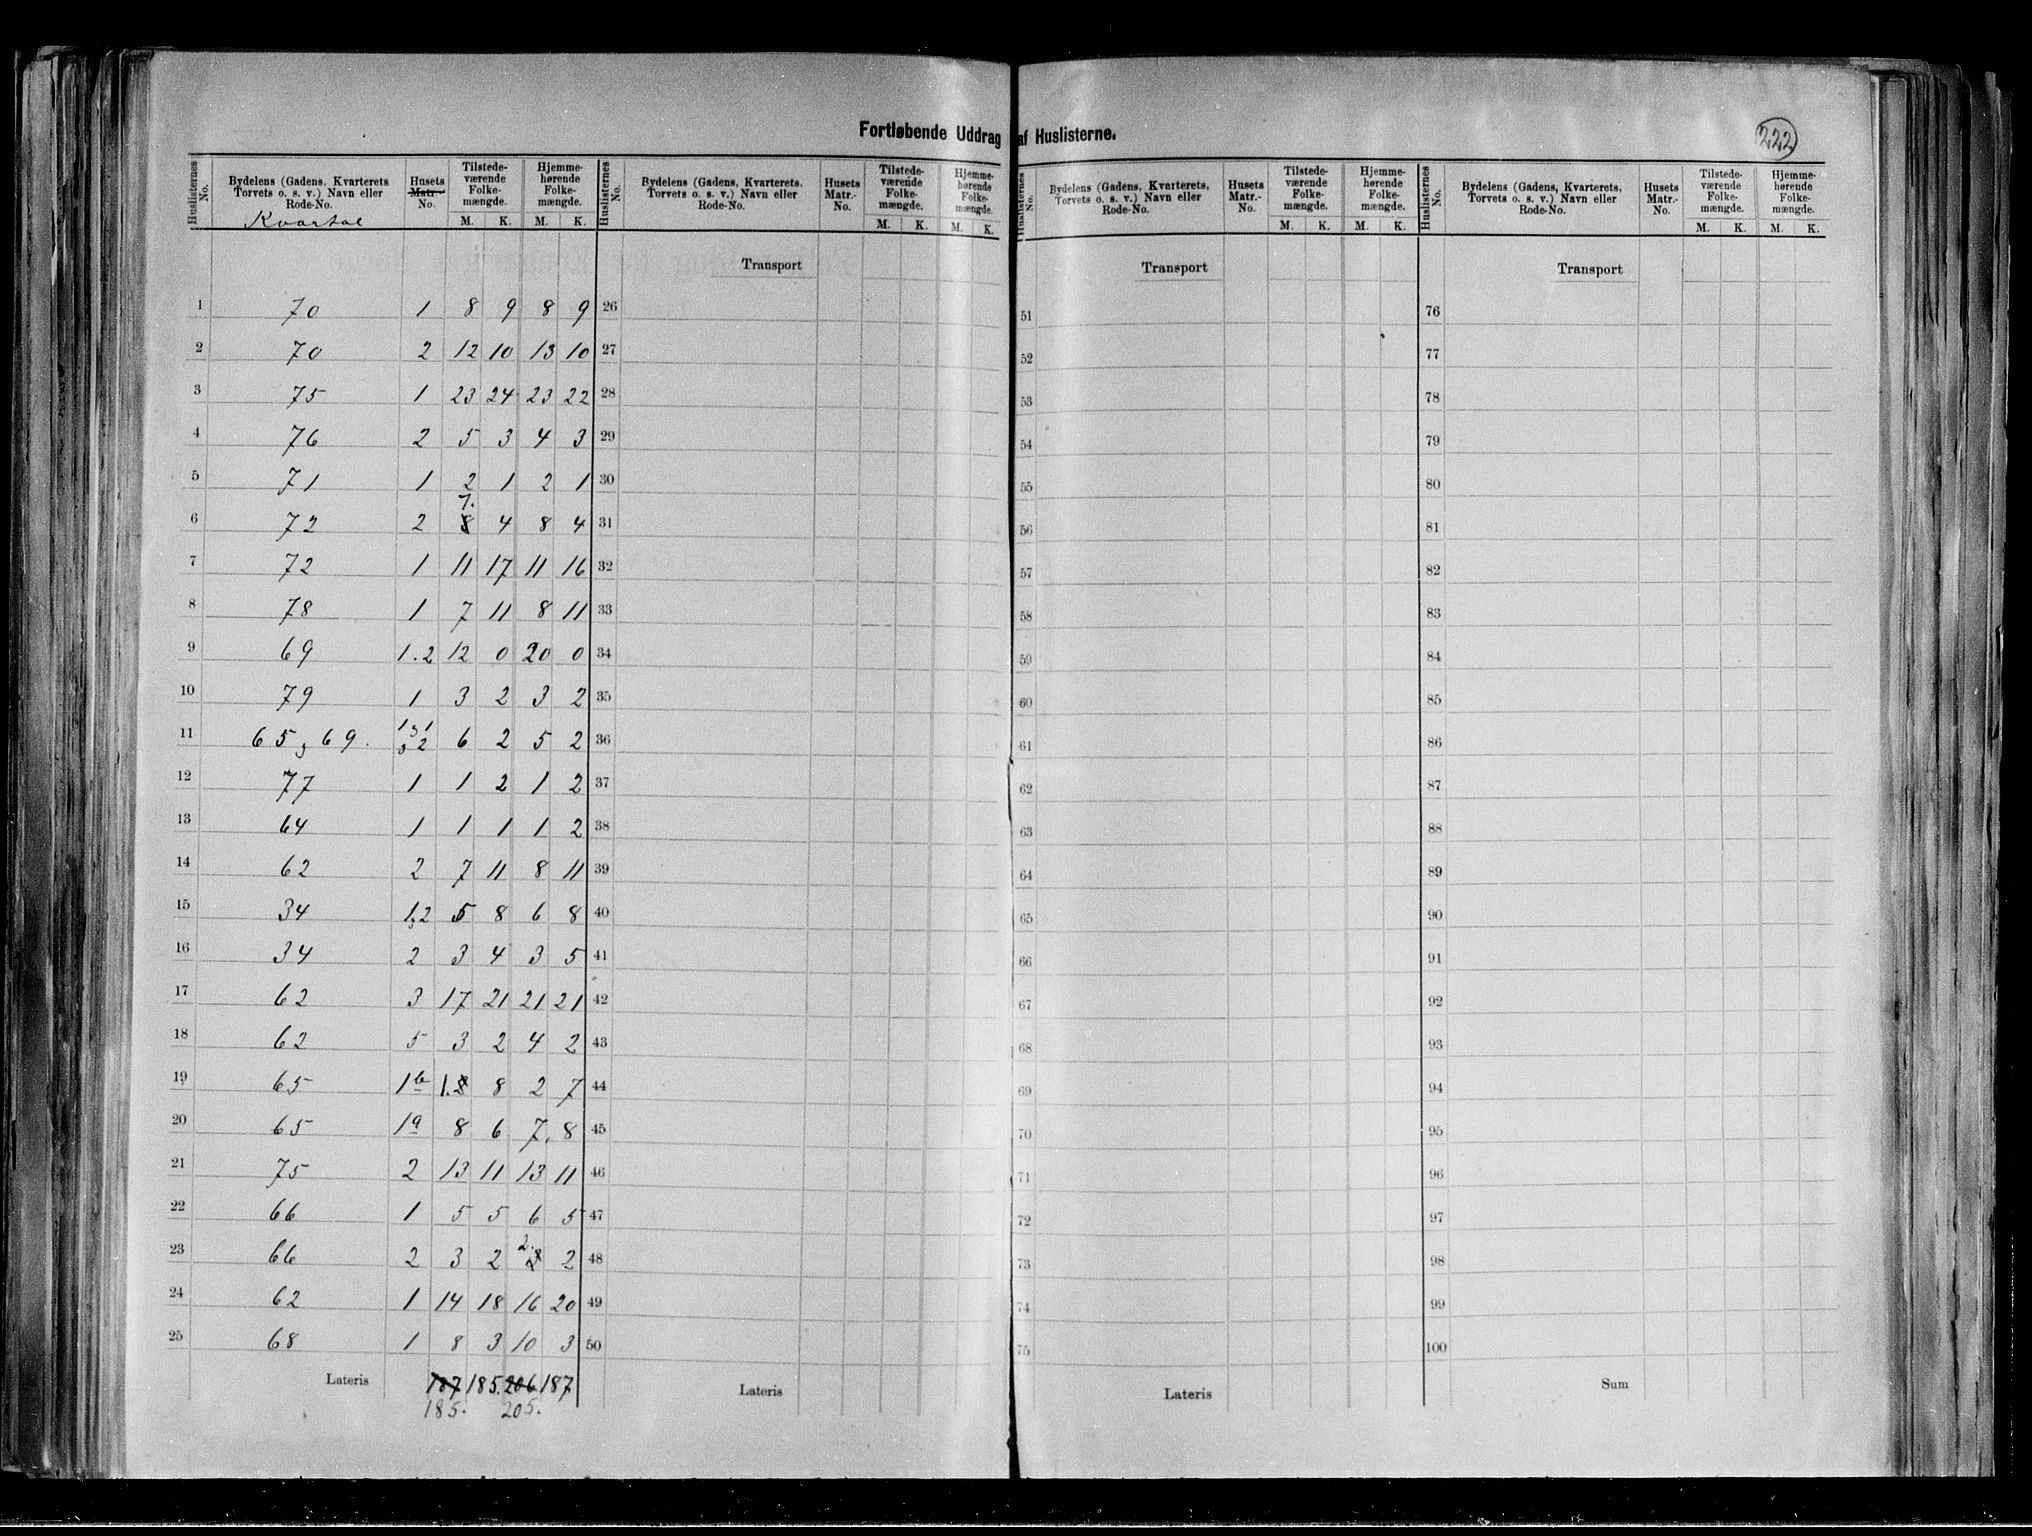 Fortløbende Uddrag af Huslisterne.
222
Huslisternes No. Bydelens (Gadens, Kvarterets Torvets o. s. v.) Navn eller Rode-No. Kvartal Husets Matr.- No. Tilstede-værende Folke-mængde. M. K. Hjemme-hørende Folke-mængde. M. K.
Huslisternes No. Bydelens (Gadens, Kvarterets, Torvets o. s. v.) Navn eller Rode-No. Husets Matr.- No. Tilstede-værende Folke-mængde. M. K. Hjemme-hørende Folke-mængde. M. K.
Huslisternes No. Bydelens (Gadens, Kvarterets, Torvets o. s. v.) Navn eller Rode-No. Husets Matr.- No. Tilstede-værende Folke-mængde. M. K. Hjemme-hørende Folke-mængde. M. K.
Huslisternes No. Bydelens (Gadens, Kvarterets, Torvets o. s. v.) Navn eller Rode-No. Husets Matr.- No. Tilstede-værende Folke-mængde. M. K. Hjemme-hørende Folke-mængde. M. K.
Transport Transport Transport
1 70 1 8 9 8 9 26 51 76
2 70 2 12 10 13 10 27 52 77
3 75 1 23 24 23 22 28 53 78
4 76 2 5 3 4 3 29 54 79
5 71 1 2 1 2 1 30 55 80
6 72 2 7. 8 4 8 4 31 56 81
7 72 1 11 17 11 16 32 57 82
8 78 1 7 11 8 11 33 58 83
9 69 1.2 12 0 20 0 34 59 84
10 79 1 3 2 3 2 35 60 85
11 65, 69. 1, 1, 2 6 2 5 2 36 61 86
12 77 1 1 2 1 2 37 62 87
13 64 1 1 1 1 2 38 63 88
14 62 2 7 11 8 11 39 64 89
15 34 1,2 5 8 6 8 40 65 90
16 34 2 3 4 3 5 41 66 91
17 62 3 17 21 21 21 42 67 92
18 62 5 3 2 4 2 43 68 93
19 65 1b 1. 8 2 7 44 69 94
20 65 1a 8 6 7. 8 45 70 95
21 75 2 13 11 13 11 46 71 96
22 66 1 5 5 6 5 47 72 97
23 66 2 3 2 2. 2 48 73 98
24 62 1 14 18 16 20 49 74 99
25 68 1 8 3 10 3 50 75 100
Lateris 187 185. 206 187 Lateris Lateris Sum
185. 205.